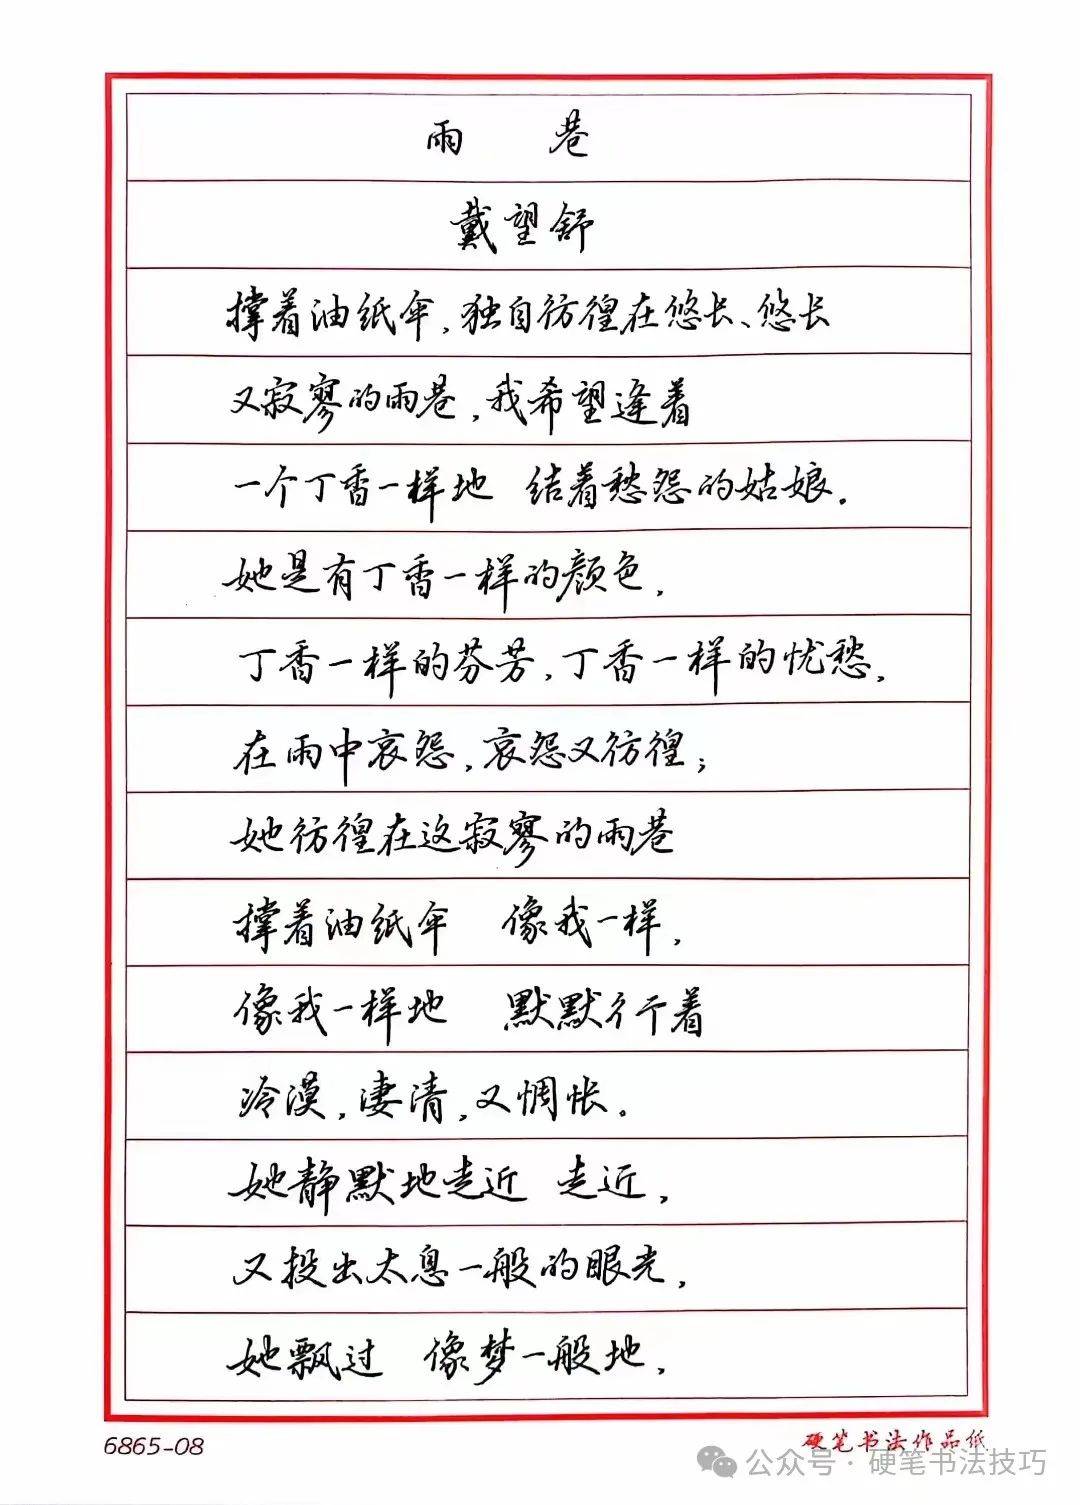 雨 巷
戴望舒
撑着油纸伞,独自彷徨在悠长、悠长
又寂寥的雨巷,我希望逢着
一个丁香一样地 结着愁怨的姑娘.
她是有丁香一样的颜色,
丁香一样的芬芳,丁香一样的忧愁,
在雨中哀怨,哀怨又彷徨;
她彷徨在这寂寥的雨巷
撑着油纸伞 像我一样,
像我一样地 默默彳亍着
冷漠,凄清,又惆怅.
她静默地走近 走近,
又投出太息一般的眼光,
她飘过 像梦一般地,
6865-08
硬笔书法作品纸
公众号·硬笔书法技巧